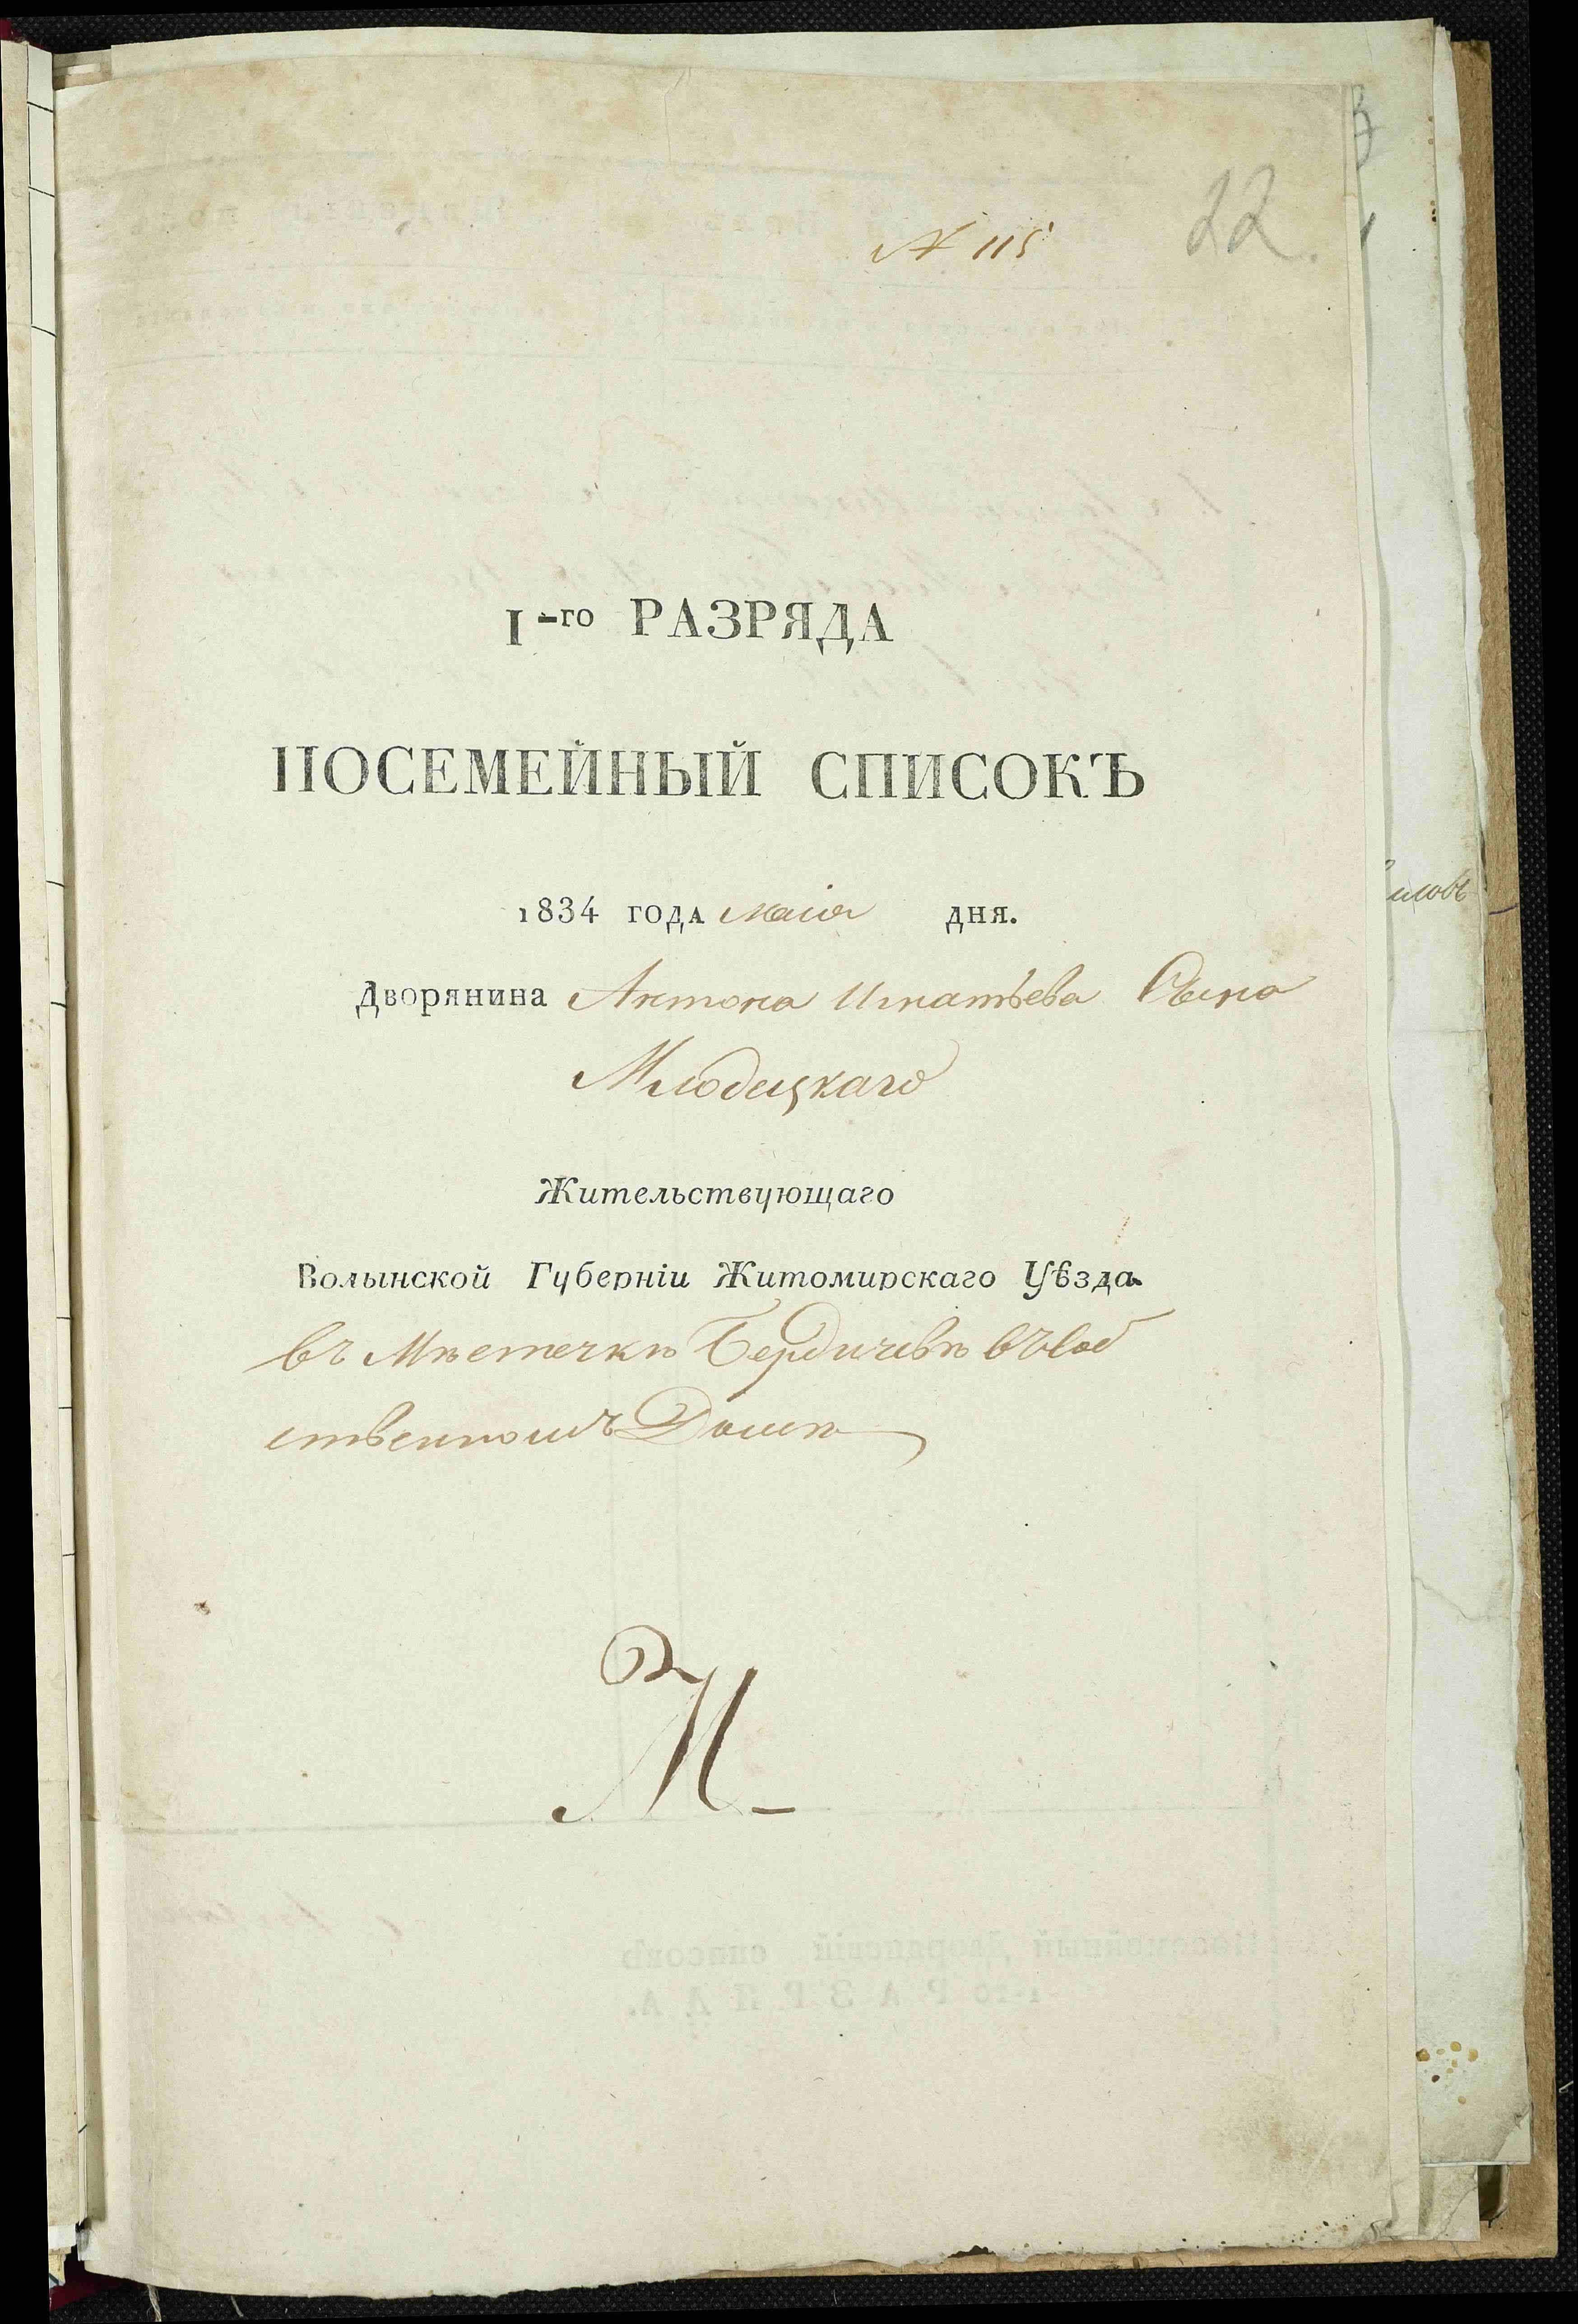 N 115
22.
I-го РАЗРЯДА
ПОСЕМЕЙНЫЙ СПИСОКЪ
1834 года маія дня.
Дворянина Антона Игнатьева Сына
Млодецкаго
Жительствующаго
Волынской Губерніи Житомирскаго Уѣзда
въ Мѣстечкѣ Бердичевѣ въ соб
ственномъ Домѣ
М